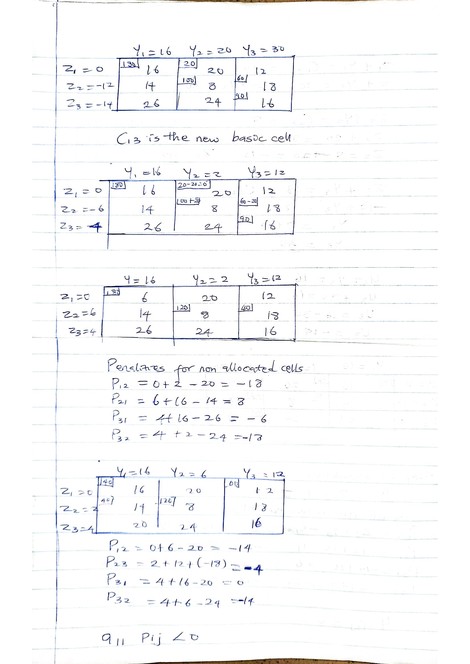 Y₁=16 Y₂=20 Y₃=30
Z₁=0 180 16 20 20 12
Z₂=-12 14 100 8 60 18
Z₃=-14 26 24 90 16
C₁3 is the new basic cell
Y₁=16 Y₂=2 Y₃=12
Z₁=0 180 16 20-20=0 20 12
Z₂=-6 14 100+20 8 60-20 18
Z₃=4 26 24 90 16
Y=16 Y₂=2 Y₃=12
Z₁=0 180 6 20 12
Z₂=6 14 120 8 40 18
Z₃=4 26 24 16
Penalties for non allocated cells
P₁₂ = 0+2-20 = -18
P₂₁ = 6+16-14 = 8
P₃₁ = 4+16-26 = -6
P₃₂ = 4+2-24 = -18
Y₁=16 Y₂=6 Y₃=12
Z₁=0 140 16 20 12
Z₂=2 40 14 120 8 18
Z₃=4 20 24 16
P₁₂ = 0+6-20 = -14
P₂₃ = 2+12+(-18) = -4
P₃₁ = 4+16-20 = 0
P₃₂ = 4+6-24 = -14
all Pij <0